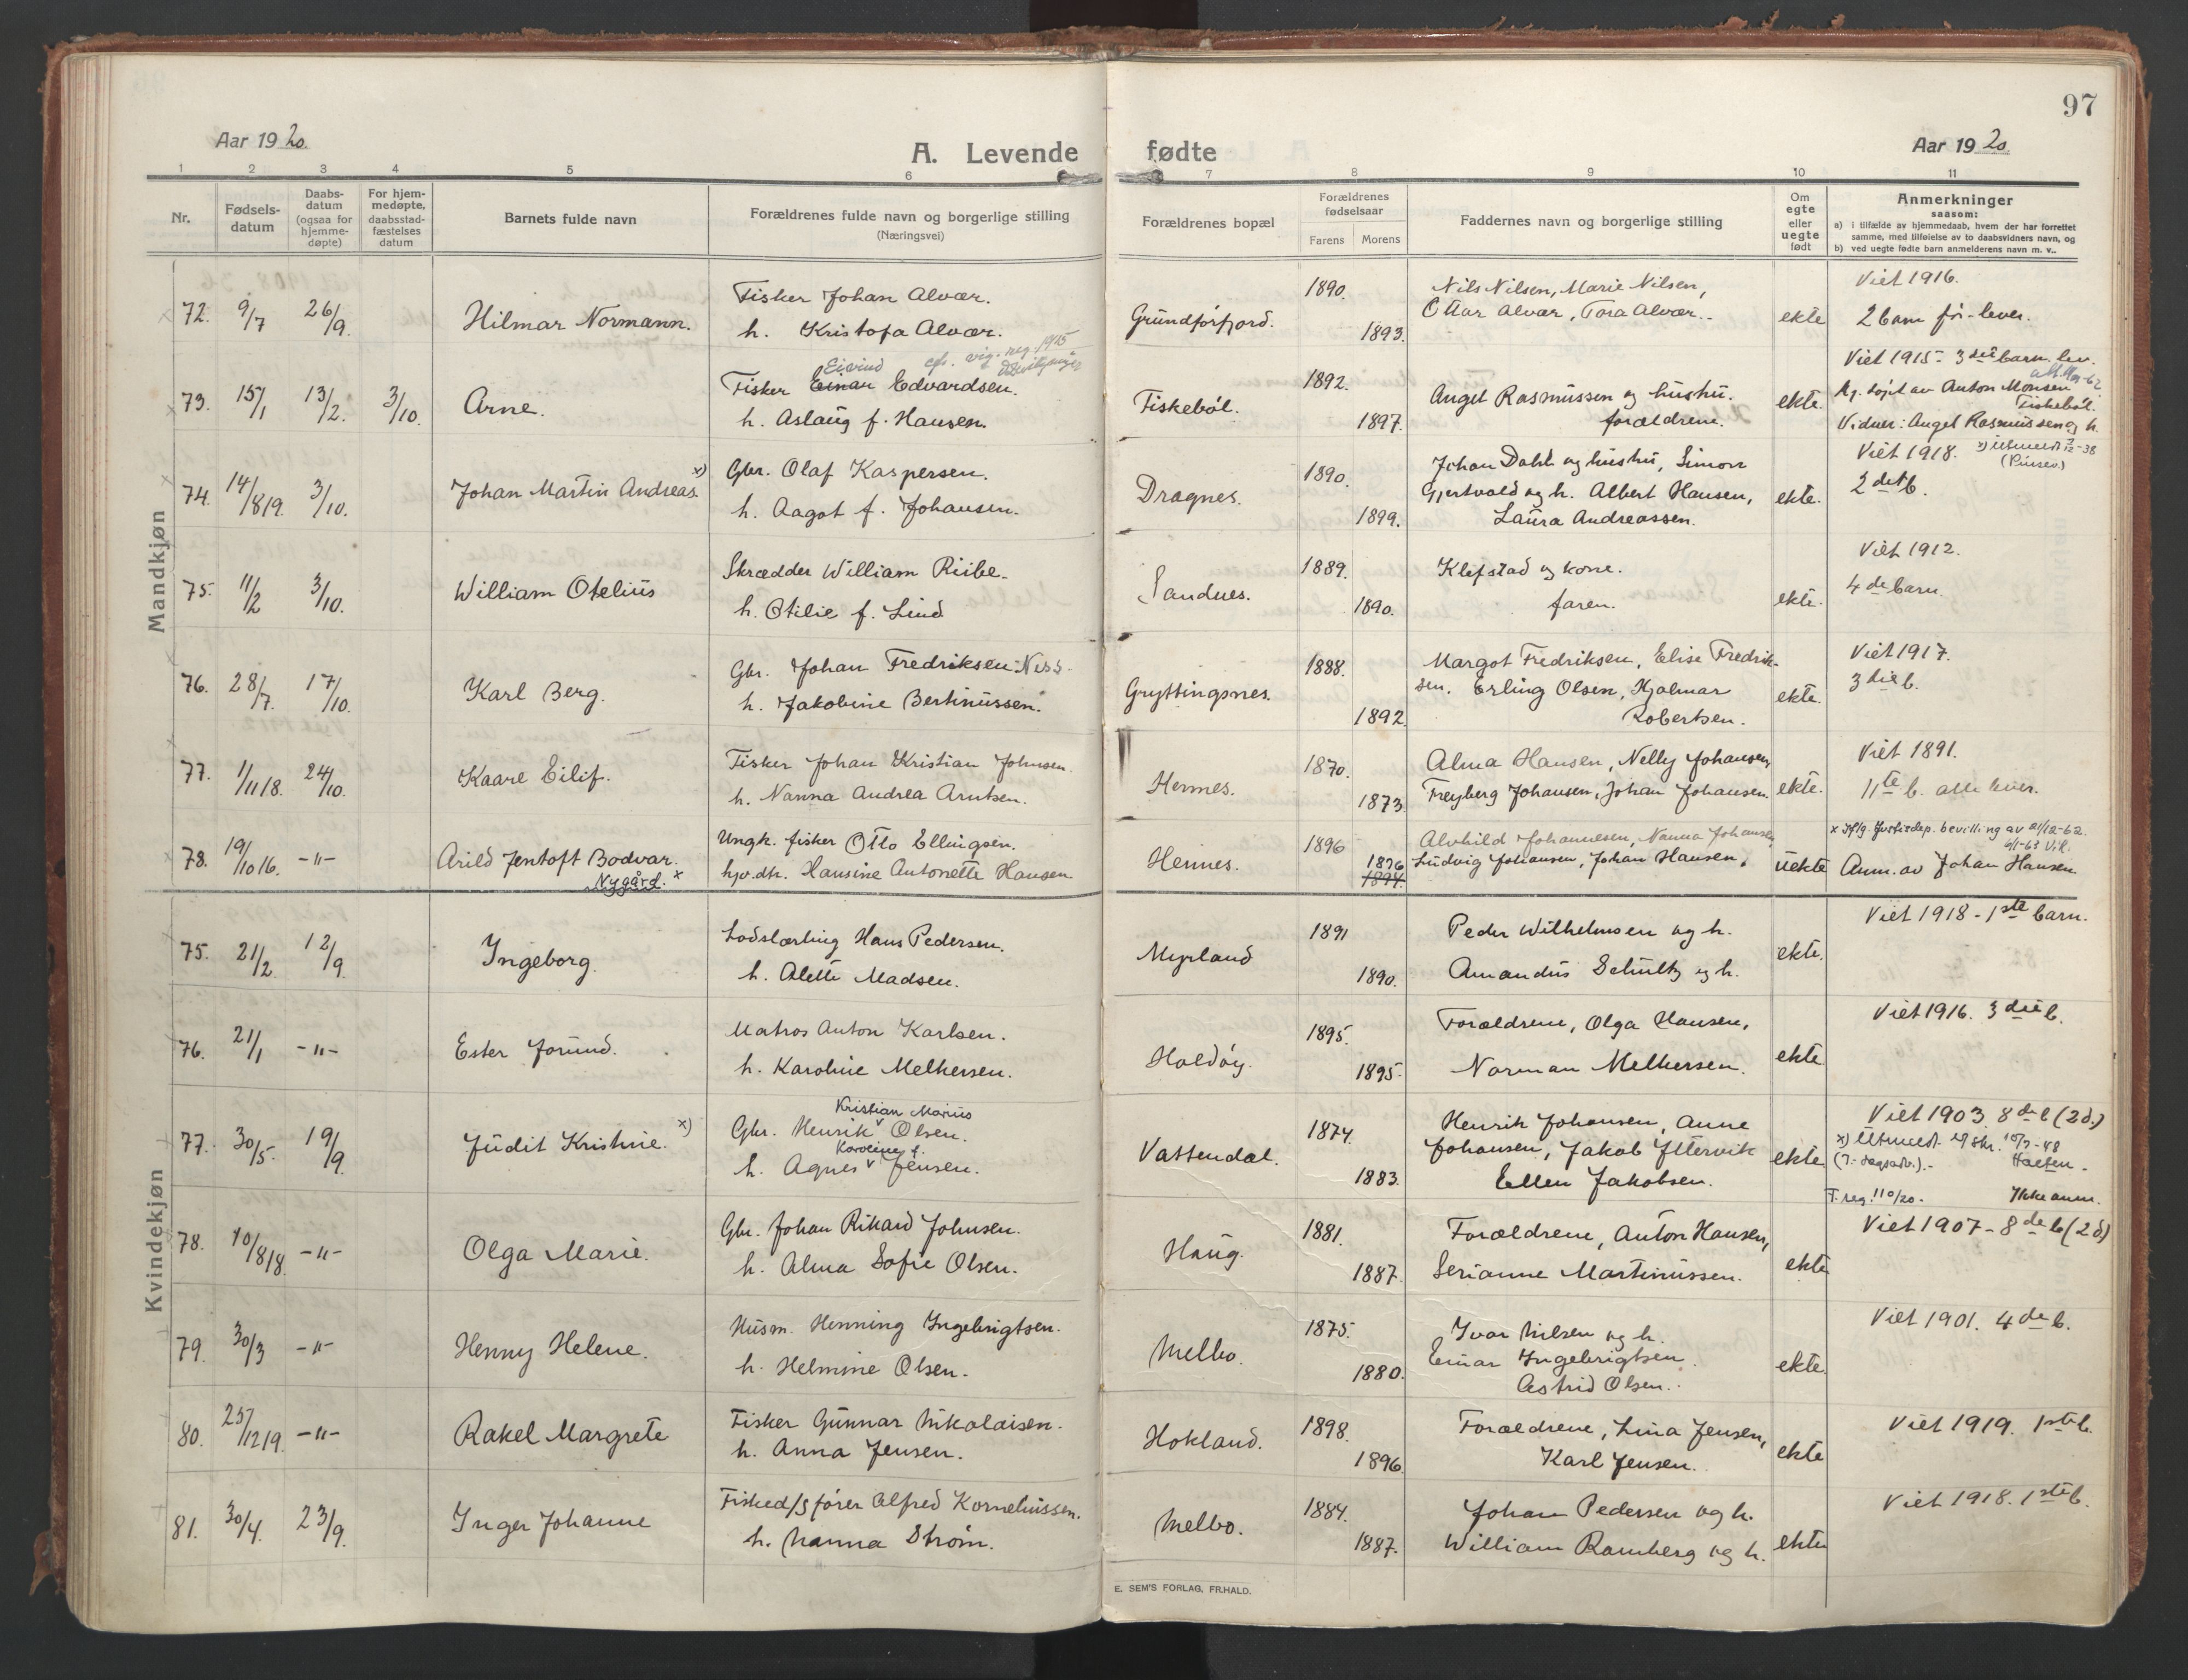 97
Aar 1920.
A. Levende fødte
Aar 1920.
1 2 3 4 5 6 7 8 9 10 11
Nr.
Fødsels-
datum
Daabs-
datum
(ogsaa for
hjemme-
døpte)
For hjem-
medøpte,
daabsstad-
fæstelses
datum
Barnets fulde navn
Forældrenes fulde navn og borgerlige stilling
(Næringsvei)
Forældrenes bopæl
Forældrenes
fødselsaar
Farens Morens
Faddernes navn og borgerlige stilling
Om
egte
eller
uegte
født
Anmerkninger
saasom:
a) i tilfælde av hjemmedaab, hvem der har forrettet
samme, med tilføielse av to daabsvidners navn, og
b) ved uegte fødte barn anmelderens navn m. v..
Mandkjøn
72. 9/7 26/9. Hilmar Normann.
Fisker Johan Alvær.
h. Kristofa Alvær.
Grundførfjord. 1890. 1893.
Nils Nilsen, Marie Nilsen,
Ottar Alvær, Tora Alvær.
ekte
Viet 1916.
2 barn før - lever.
73. 15/1 13/2. 3/10. Arne.
Eivind cfr. vig. reg. 1915
Fisker Einar Edvardsen.
h. Aslaug f. Hansen.
Fiskebøl. 1892. 1897.
Anget Rasmussen og hushu.
forældrene.
ekte.
Viet 1915 - 3die barn. lev.
Hj. døpt av Anton Monsen
Fiskebøl.
Vidner: Anget Rasmussen og h.
74. 14/8 19. 3/10. Johan Martin Andreas. x)
Gbr. Olaf Kaspersen.
h. Aagot f. Johansen.
Dragnes. 1890. 1899.
Johan Dahl og hushu, Simon
Gjertvold og h. Albert Hansen,
Laura Andreassen.
ekte.
Viet 1918. x) Utmeldt 7/12-38
(Pinsev.)
2det b.
75. 11/2 3/10. William Otelius
Skrædder William Riibe.
h. Otilie f. Lind
Sandnes. 1889. 1890.
Klefstad og kone.
faren.
ekte.
Viet 1912.
4de barn.
76. 28/7. 17/10. Karl Berg.
Gbr. Johan Fredriksen-Ness.
h. Jakobine Bertinussen.
Gryttingsnes. 1888. 1892.
Margot Fredriksen, Elise Fredrik-
sen. Erling Olsen, Hjalmar
Robertsen.
ekte.
Viet 1917.
3die b.
77. 1/11 18. 24/10. Kaare Eilif.
Fisker Johan Kristian Johnsen.
h. Nanna Andrea Arntsen.
Hennes. 1870. 1873.
Alma Hansen, Nelly Johansen,
Freyberg Johansen, Johan Johansen.
ekte.
Viet 1891.
11te b. alle lever.
78. 19/10 16. -"- Arild Jentoft Bodvar.
Nygård. x
Ungk. fisker Otto Ellingsen.
hjv. dtr. Hansine Antonette Hansen
Hennes. 1896 1896 1894.
Alvhild Johannesen, Nanna Johansen,
Ludvig Johansen, Johan Hansen,
uekte
x Iflg. Justisdep. bevilling av 21/12-62.
Anm. av Johan Hansen.
Kvindekjøn
75. 21/2 12/9. Ingeborg.
Lodslærling Hans Pedersen.
h. Alette Madsen.
Myrland 1891 1890.
Peder Wilhelmsen og h.
Amandus Schultz og h.
ekte.
Viet 1918 - 1ste barn.
76. 21/1 -"- Ester Jorund.
Matros Anton Karlsen.
h. Karoline Melkersen.
Holdøy. 1895. 1895.
Forældrene, Olga Hansen,
Norman Melkersen.
ekte
Viet 1916. 3die b.
77. 30/5. 19/9. Judit Kristine. x)
Kristian Marius
Gbr. Henrik Olsen.
Karoline f.
h. Agnes Jensen.
Vattendal. 1874. 1883.
Henrik Johansen, Anne
Johansen, Jakob Yttervik
Ellen Jakobsen.
ekte
Viet 1903. 8de b (2 d.)
x) Utmeldt
78. 10/8 18. -"- Olga Marie.
Gbr. Johan Rikard Johnsen.
h. Alma Sofie Olsen.
Haug. 1881. 1887.
Forældrene, Anton Hansen,
Serianne Martinussen.
ekte
F. reg. 110/20. Ikke anm.
Viet 1907 - 8de b (2 d)
79. 30/3 -"- Henny Helene.
Husm. Henning Ingebrigtsen.
h. Helmine Olsen.
Melbo. 1875. 1880.
Ivar Nilsen og h.
Einar Ingebrigtsen.
Astrid Olsen.
ekte.
Viet 1901. 4de b.
80. 25/12 19. -"- Rakel Margrete
Fisker Gunnar Nikolaisen.
h. Anna Jensen.
Hokland. 1898. 1896.
Forældrene, Lina Jensen,
Karl Jensen.
ekte
Viet 1919. 1ste b.
81. 30/4. 23/9. Inger Johanne
Fisked/s fører Alfred Kornelinssen.
h. Nanna Strøm.
Melbo. 1884. 1887.
Johan Pedersen og h.
William Ramberg og h.
ekte
Viet 1918. 1ste b.
E. SEM'S FORLAG, FR.HALD.